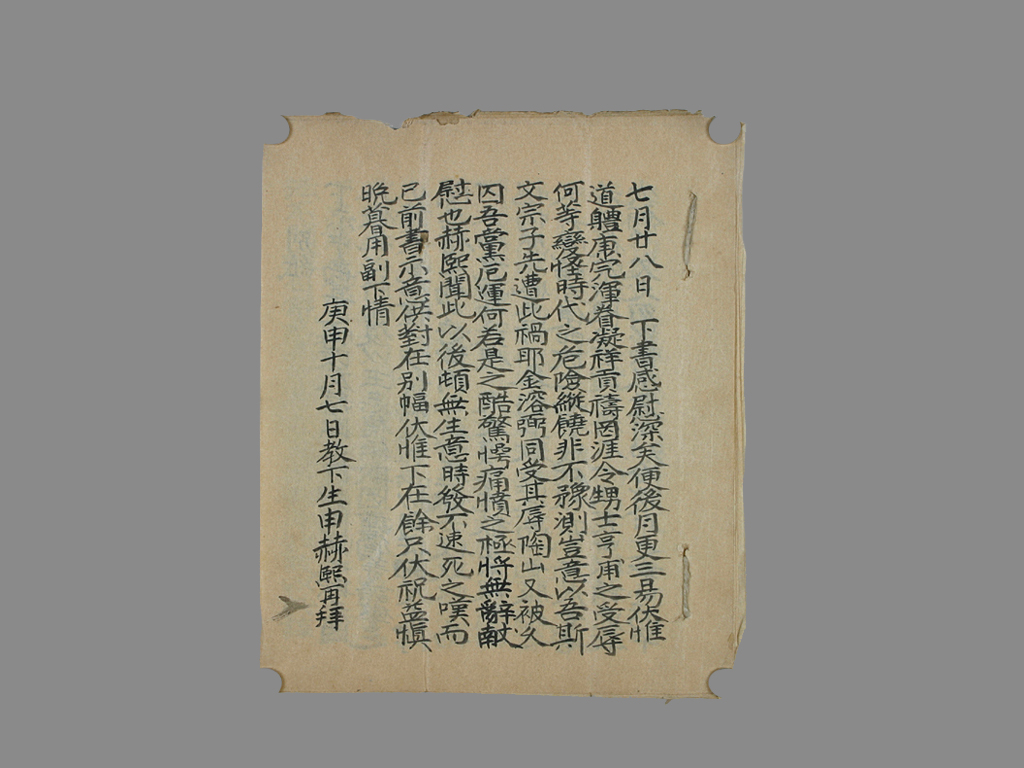 七月廿八日 下書感慰深矣便後月更三易伏惟
道軆康完渾眷凝祥貢禱罔涯令甥士亨甫之受辱
何等變怪時代之危險縱饒非不豫測豈意以吾斯
文宗子先遭此禍耶金溶弼同受其辱陶山又被久
囚吾黨厄運何若是之酷驚愕痛憤之極將無辭仗
慰也赫熙聞此以後頓無生意時發不速死之嘆而
已前書示意供對在別幅伏惟下在餘只伏祝益愼
晩暮用副下情
庚申十月七日教下生申赫熙再拜